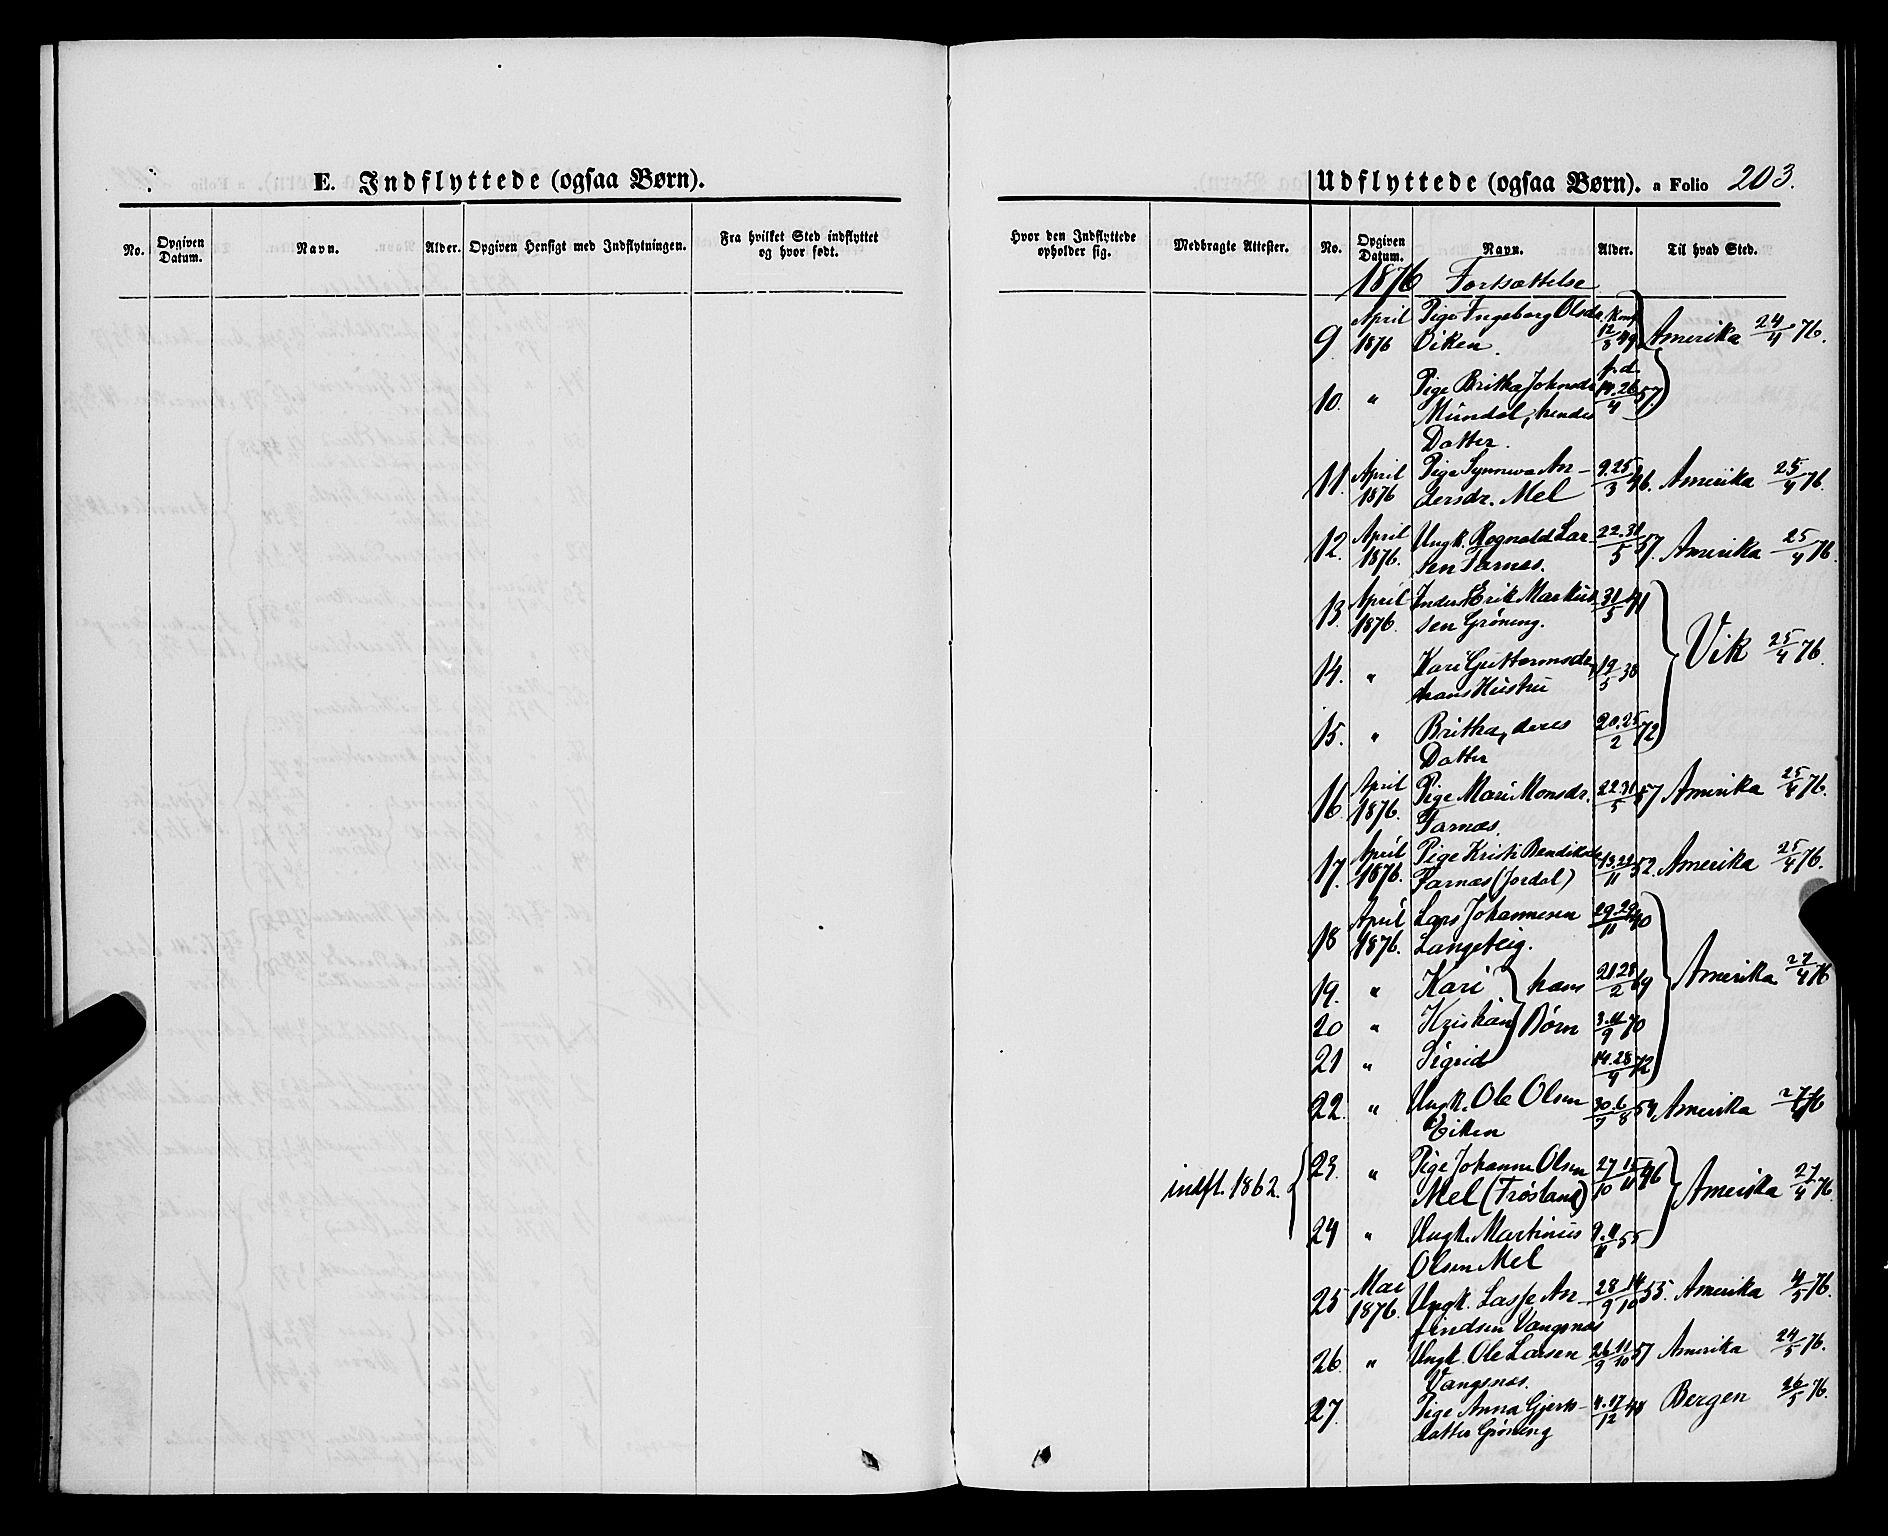 E. Indflyttede (ogsaa Børn).
No.
Opgiven Datum.
Navn.
Alder.
Opgiven Hensigt med Indflytningen.
Fra hvilket Sted indflyttet og hvor født.
Udflyttede (ogsaa Børn). a Folio 203.
Hvor den Indflyttede opholder sig.
Medbragte Attester.
No.
Opgiven Datum.
Navn.
Alder.
Til hvad Sted.
1876 Fortsættelse
9. April 1876 Pige Ingeborg Olsdr. Konf. 12/8 49 Amerika 24/4 76.
Viken.
10. " Pige Britha Johnsdr. fød. 14.26/4 57.
Mundal, hendes
Datter.
11. April 1876 Pige Synneva An- 9.25/3 46. Amerika 25/4 76.
dersdr. Mel
12. April 1876. Ungk. Rognald Lar- 22.31/5 57. Amerika 25/4 76.
sen Farnæs.
13. April 1876. Inders. Erik Markus- 31/5 41 Vik 25/4 76.
sen Grøning.
14. " Kari Guttormsdr. 19/5 38
hans Hustru
15. " Britha, deres 20.25/2 72
Datter
16. April 1876. Pige Mari Monsdr. 22.31/5 57 Amerika 25/4 76.
Farnæs.
17. April 1876. Pige Kristi Bendiksdr. 13.29/11 52. Amerika 25/4 76.
Farnæs (Jordal)
18 April 1876. Lars Johannesen 29.29/11 40 Amerika 27/4 76
Langeteig.
19. " Kari hans 21.28/2 69
20 " Kristian Børn 3.11/9 70
21 " Sigrid 14.28/4 72
22. " Ungk. Ole Olsen 30.6/7 8 54 Amerika 27/4 76
Eiken
indfl. 1862. 23. " Pige Johanne Olsen 27 15/10 11 46 Amerika 27/4 76.
Mel (Trøsland)
24 " Ungk. Martinus 9.11/11 55
Olsen Mel
25 Mai 1876. Ungk. Lasse An- 28 14/9 10 55. Amerika 4/5 76.
findsen Vangsnæs
26. " Ungk. Ole Larsen 26 11/9 10 57 Amerika 24/5 76.
Vangsnæs.
27. Pige Anna Gjerts- 4.17/12 48 Bergen 26/5 76.
datter Grøning